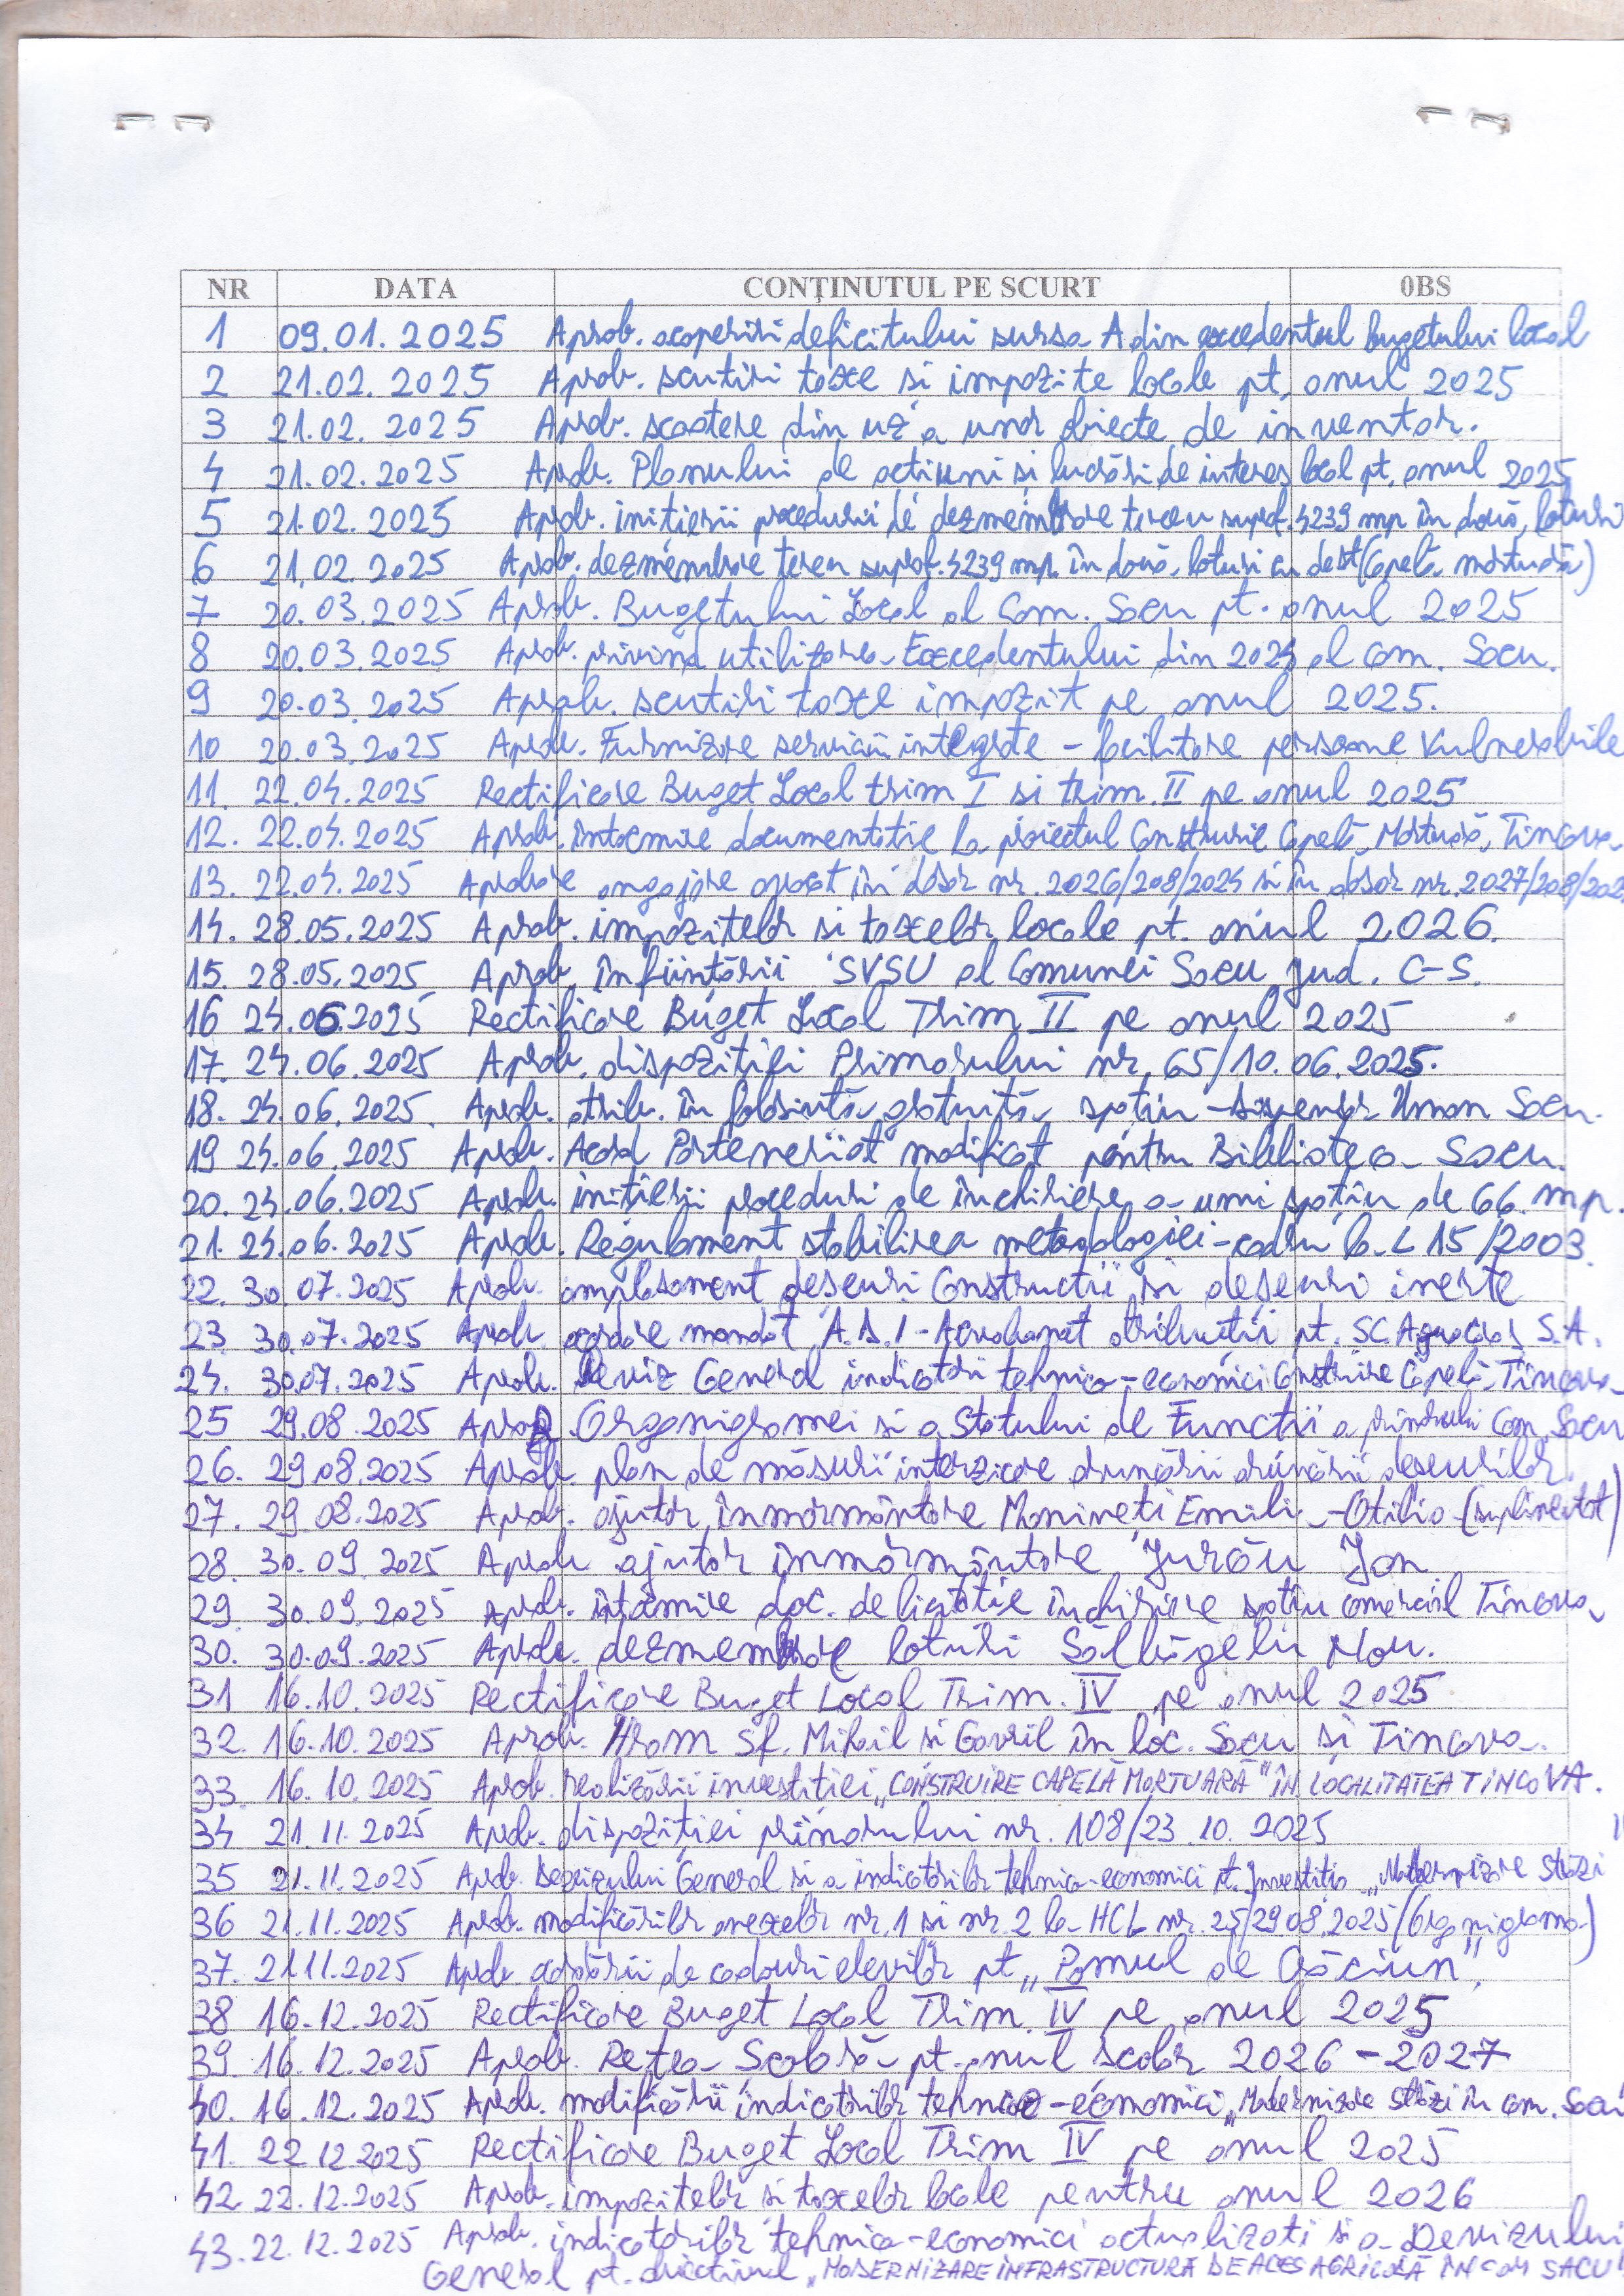 NR DATA CONŢINUTUL PE SCURT 0BS
1 09.01.2025 Aprob. acoperirii deficitului sursa A din excedentul bugetului local
2 21.02.2025 Aprob. scutiri taxe si impozite locale pt. anul 2025
3 21.02.2025 Aprob. scoatere din uz a unor obiecte de inventar.
4 21.02.2025 Aprob. Planului de actiuni si lucrări de interes local pt. anul 2025
5 21.02.2025 Aprob. initierii procedurii de dezmembrare teren supraf. 4239 mp în două loturi
6 21.02.2025 Aprob. dezmembrare teren supraf. 4239 mp. în două loturi cu dest (Capelă mortuară)
7 20.03.2025 Aprob. Bugetului Local al Com. Sacu pt. anul 2025
8 20.03.2025 Aprob. privind utilizarea Excedentului din 2024 al com. Sacu.
9 20.03.2025 Aprob. scutiri taxe impozit pe anul 2025.
10 20.03.2025 Aprob. Furnizare servicii integrate - facilitare persoane Vulnerabile
11. 22.04.2025 Rectificare Buget Local trim I si trim. II pe anul 2025
12. 22.04.2025 Aprob. întocmire documentatie la proiectul Construire Capelă Mortuară, Tincova
13. 22.04.2025 Aprobare angajare avocat în dosar nr. 2026/208/2024 si în dosar nr. 2027/208/202
14. 28.05.2025 Aprob. impozitelor si taxelor locale pt. anul 2026.
15. 28.05.2025 Aprob. înfiintării SVSU al Comunei Sacu jud. C-S.
16 24.06.2025 Rectificare Buget Local Trim II pe anul 2025
17. 24.06.2025 Aprob. dispozitiei Primarului nr. 65/10.06.2025.
18. 24.06.2025. Aprob. atrib. în folosintă gratuită spatiu Uman Sacu.
19 24.06.2025 Aprob. Acord Parteneriat modificat pentru Biblioteca Sacu.
20. 24.06.2025 Aprob. initierii proceduri de închiriere a unui spatiu de 66 mp.
21. 24.06.2025 Aprob. Regulament stabilirea metodologiei-cadru la L 15/2003.
22. 30.07.2025 Aprob. amplasament deseuri Constructii si deseuri inerte
23. 30.07.2025 Aprob. acordare mandat A.D.I - Acvabanat atributii pt. SC S.A.
24. 30.07.2025 Aprob. Deviz General indicatori tehnico-economici Construire Capelă Tincova
25 29.08.2025 Aprob. Organigramei si a Statului de Functii a primarului Com. Sacu
26. 29.08.2025 Aprob. plan de măsuri interzicere aruncării deseurilor.
27. 29.08.2025 Aprob. ajutor înmormântare Emilia-Otilia (suplimentat)
28. 30.09.2025 Aprob ajutor înmormântare Jurău Ion
29. 30.09.2025 Aprob. întocmire doc. de licitatie închiriere spatiu comercial Tincova
30. 30.09.2025 Aprob. dezmembrare loturi Sălbăgelu Nou.
31 16.10.2025 Rectificare Buget Local Trim. IV pe anul 2025
32. 16.10.2025 Aprob. Hram Sf. Mihail si Gavril în loc. Sacu si Tincova.
33. 16.10.2025 Aprob. realizării investitiei „CONSTRUIRE CAPELĂ MORTUARĂ" ÎN LOCALITATEA TINCOVA.
34 21.11.2025 Aprob. dispozitiei primarului nr. 108/23.10.2025
35 21.11.2025 Aprob. Devizului General si a indicatorilor tehnico-economici pt. Investitia „Modernizare străzi
36 21.11.2025 Aprob. modificărilor anexelor nr. 1 si nr. 2 la HCL nr. 25/29.08.2025 (Organigrama)
37. 21.11.2025 Aprob. acordării de cadouri elevilor pt „Pomul de Crăciun".
38 16.12.2025 Rectificare Buget Local Trim. IV pe anul 2025
39. 16.12.2025 Aprob. Retea Scolară pt. anul scolar 2026-2027
40. 16.12.2025 Aprob. modificării indicatorilor tehnico-economici „Modernizare străzi în com. Sacu
41. 22 12 2025 Rectificare Buget Local Trim IV pe anul 2025
42. 22.12.2025 Aprob. impozitelor si taxelor locale pentru anul 2026
43. 22.12.2025 Aprob. indicatorilor tehnico-economici actualizati si a Devizului
General pt. obiectivul „MODERNIZARE INFRASTRUCTURĂ DE ACES AGRICOLĂ ÎN COM SACU"